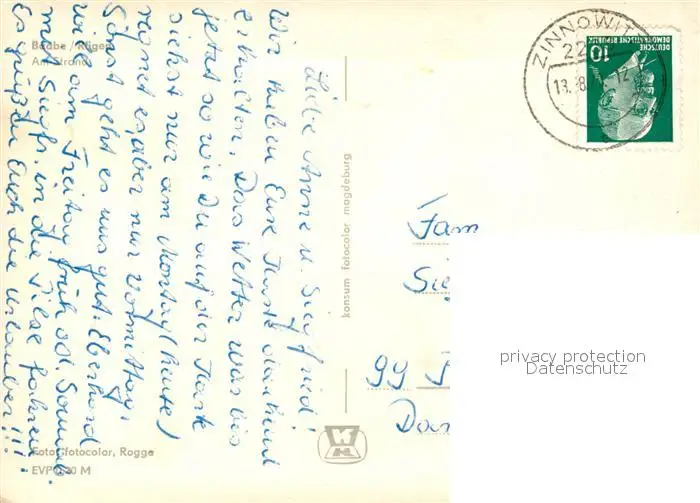 Baabe / Rügen
Am Strand
Liebe Anne u. Siegfried!
Wir haben Eure Karte dankend
erhalten. Das Wetter war bis
jetzt so wie Du auf der Karte
siehst nur am Montag (heute)
regnet es, aber nur Vormittag.
Sonst geht es uns gut. Eberhard
will am Freitag früh od. Sonnab.
mit Siegfr. in die fahren
Es grüßen Euch die Urlauber!!!
konsum fotocolor magdeburg
Foto: fotocolor, Rogge
EVP 0,20 M
ZINNOWITZ
22
13. 8. 12
DEUTSCHE
DEMOKRATISCHE REPUBLIK
10
Fam
Sie
99 P
Dor
privacy protection
Datenschutz